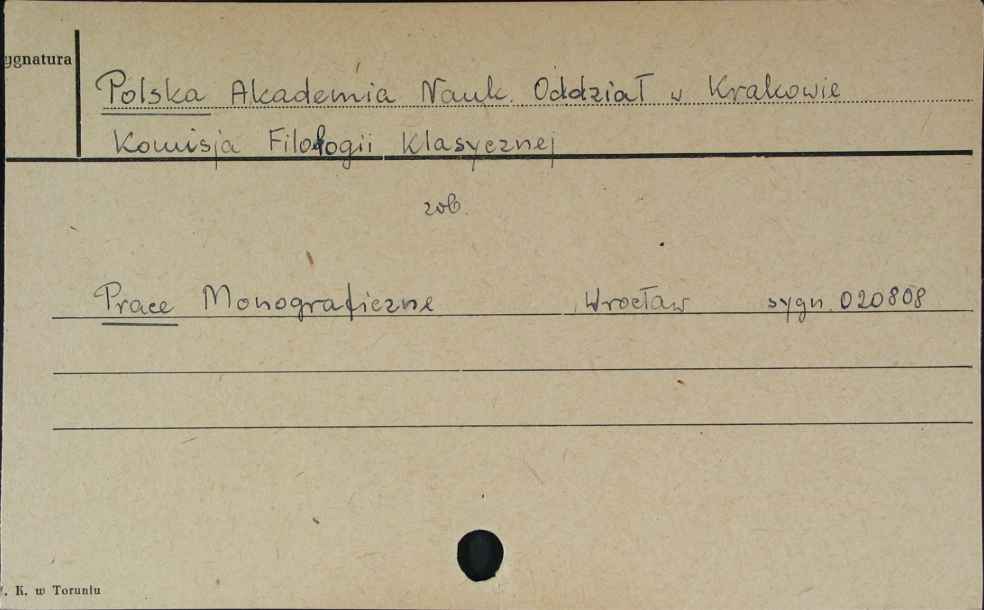 ygnatura
Polska Akademia Nauk. Oddział w Krakowie
Komisja Filologii Klasycznej
zob.
Prace Monograficzne Wrocław sygn. 020808
. K. w Toruniu